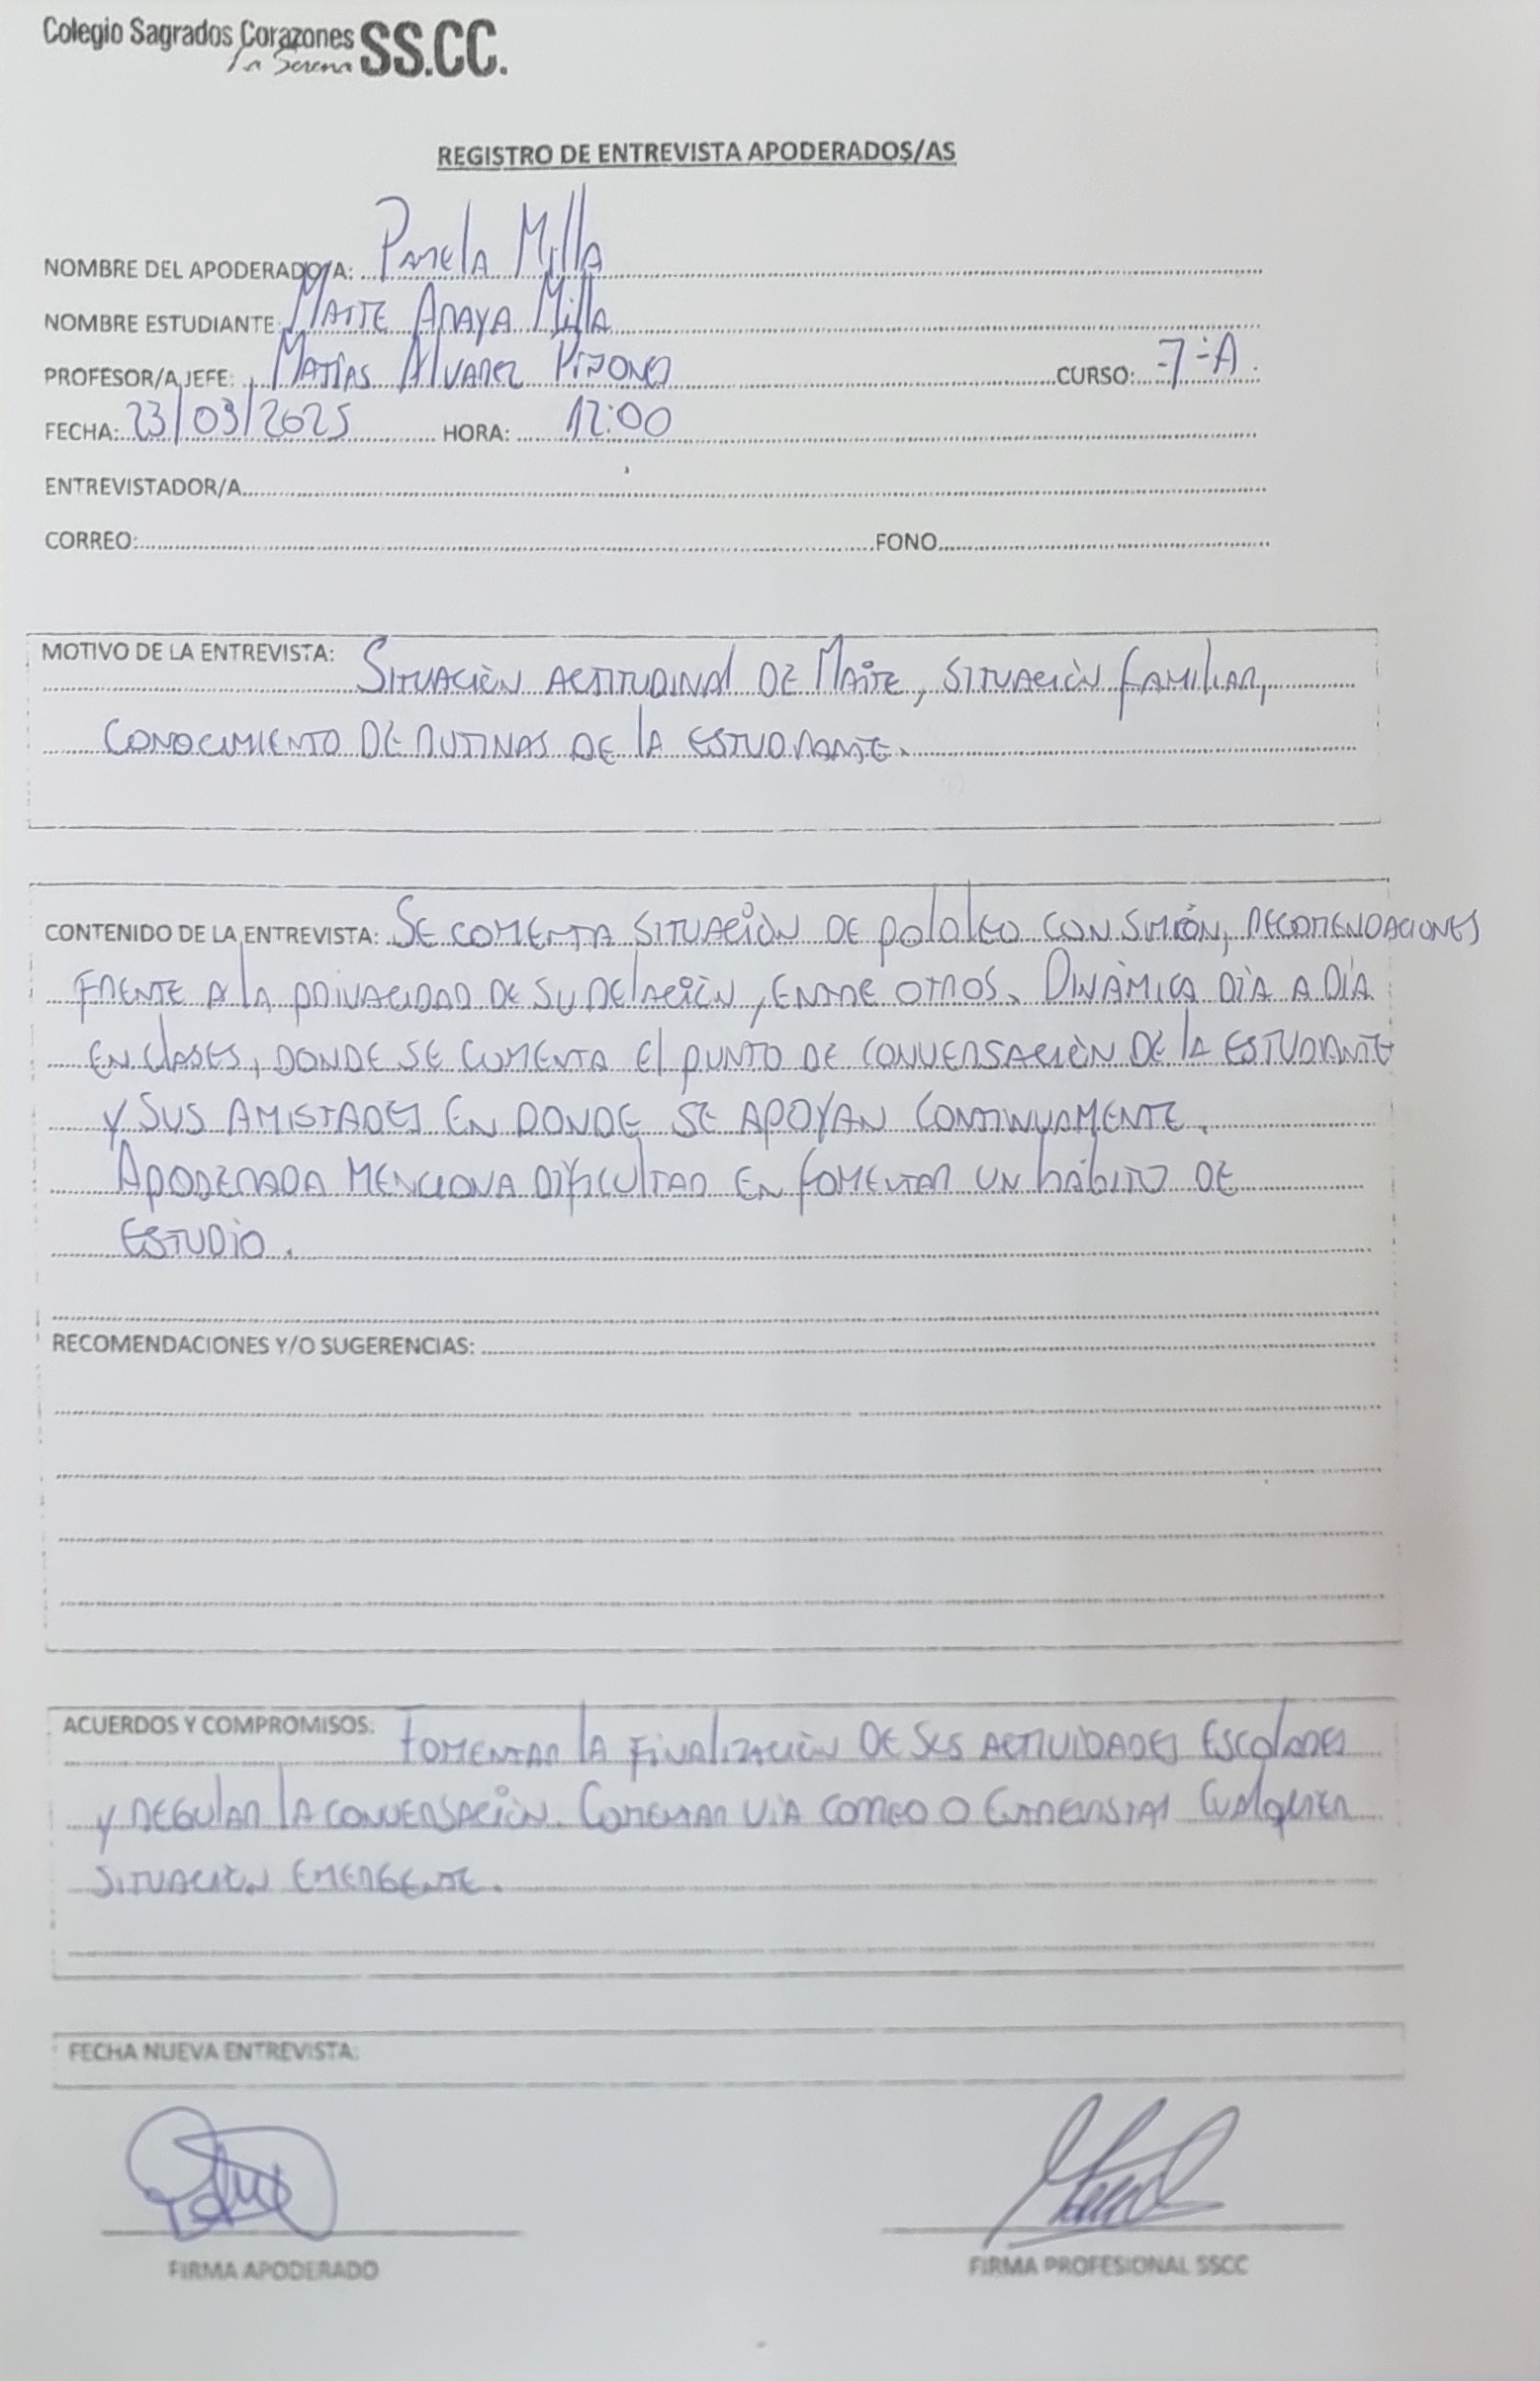 Colegio Sagrados Corazones SS.CC.
La Serena
REGISTRO DE ENTREVISTA APODERADOS/AS
NOMBRE DEL APODERADO/A: Pamela Milla
NOMBRE ESTUDIANTE: Maite Araya Milla
PROFESOR/A JEFE: Matías Alvarez CURSO: 7-A
FECHA: 23/03/2025 HORA: 12:00
ENTREVISTADOR/A
CORREO: FONO
MOTIVO DE LA ENTREVISTA: Situación actitudinal de Maite, situación familiar,
conocimiento de rutinas de la estudiante.
CONTENIDO DE LA ENTREVISTA: Se comenta situación de pololeo con Simón, recomendaciones
frente a la privacidad de su relación, entre otros. Dinámica día a día
en clases, donde se comenta el punto de conversación de la estudiante
y sus amistades en donde se apoyan continuamente.
Apoderada menciona dificultad en fomentar un hábito de
estudio.
RECOMENDACIONES Y/O SUGERENCIAS:
ACUERDOS Y COMPROMISOS: Fomentar la finalización de sus actividades escolares
y regular la conversación. Comentar vía correo o entrevistas cualquier
situación emergente.
FECHA NUEVA ENTREVISTA:
FIRMA APODERADO FIRMA PROFESIONAL SSCC